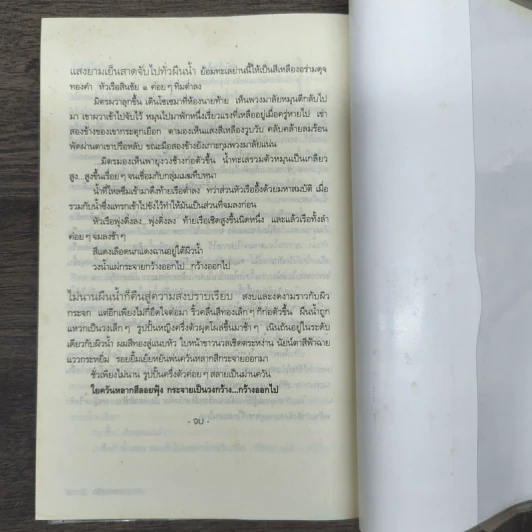 แสงยามเย็นสาดจับไปทั่วผืนน้ำ ย้อมทะเลย่านนี้ให้เป็นสีเหลืองอร่ามดุจ
ทองคำ หัวเรือสินชัย ๑ ค่อย ๆ ทิ่มต่ำลง
มิตรผวาลุกขึ้น เดินโซเซมาที่ห้องนายท้าย เห็นพวงมาลัยหมุนตีกลับไป
มา เขาผวาเข้าไปจับไว้ หมุนไปมาพักหนึ่งเรี่ยวแรงที่เหลืออยู่เมื่อครู่หายไป เข่า
สองข้างของเขากระตุกเยือก ตามองเห็นแสงสีเหลืองวูบวับ คลับคล้ายลมร้อน
พัดผ่านตาเขาปรือหลับ ขณะมือสองข้างยังเกาะกุมพวงมาลัยแน่น
...มิตรมองเห็นพายุงวงช้างก่อตัวขึ้น น้ำทะเลรวมตัวหมุนเป็นเกลียว
สูง...สูงขึ้นเรื่อย ๆ จนเชื่อมกับกลุ่มเมฆทึบหนา
น้ำที่ไหลซึมเข้ามาดึงท้ายเรือต่ำลง ทว่าส่วนหัวเรืออื้อด้วยมหาสมบัติ เมื่อ
รวมกับน้ำซึ่งแทรกเข้าไปขังไว้ทำให้มันเป็นส่วนที่จมลงก่อน
หัวเรือพุ่งดิ่งลง...พุ่งดิ่งลง ท้ายเรือเชิดสูงขึ้นนิดหนึ่ง และแล้วเรือทั้งลำ
ค่อย ๆ จมลงช้า ๆ
สีแดงเลือดนกแดงฉานอยู่ใต้ผิวน้ำ
วงน้ำแผ่กระจายกว้างออกไป...กว้างออกไป
ไม่นานผืนน้ำก็คืนสู่ความสงบราบเรียบ สงบและงดงามราวกับผิว
กระจก แต่อีกเพียงไม่กี่อึดใจต่อมา ริ้วคลื่นสีทองเล็ก ๆ ก็ก่อตัวขึ้น ผืนน้ำถูก
แหวกเป็นวงเล็ก ๆ รูปปั้นหญิงครึ่งตัวผุดโผล่ขึ้นมาช้า ๆ เนินถันอยู่ในระดับ
เดียวกับผิวน้ำ ผมสีทองลู่แนบหัว ใบหน้าขาวนวลเชิดตระหง่าน นัยน์ตาสีฟ้าฉาย
แววกระหยิ่ม รอยยิ้มเย้ยหยันพ่นควันหลากสีกระจายออกมา
ชั่วเพียงไม่นาน รูปปั้นครึ่งตัวค่อย ๆ สลายเป็นม่านควัน
ใยควันหลากสีลอยฟุ้ง กระจายเป็นวงกว้าง...กว้างออกไป
- จบ -